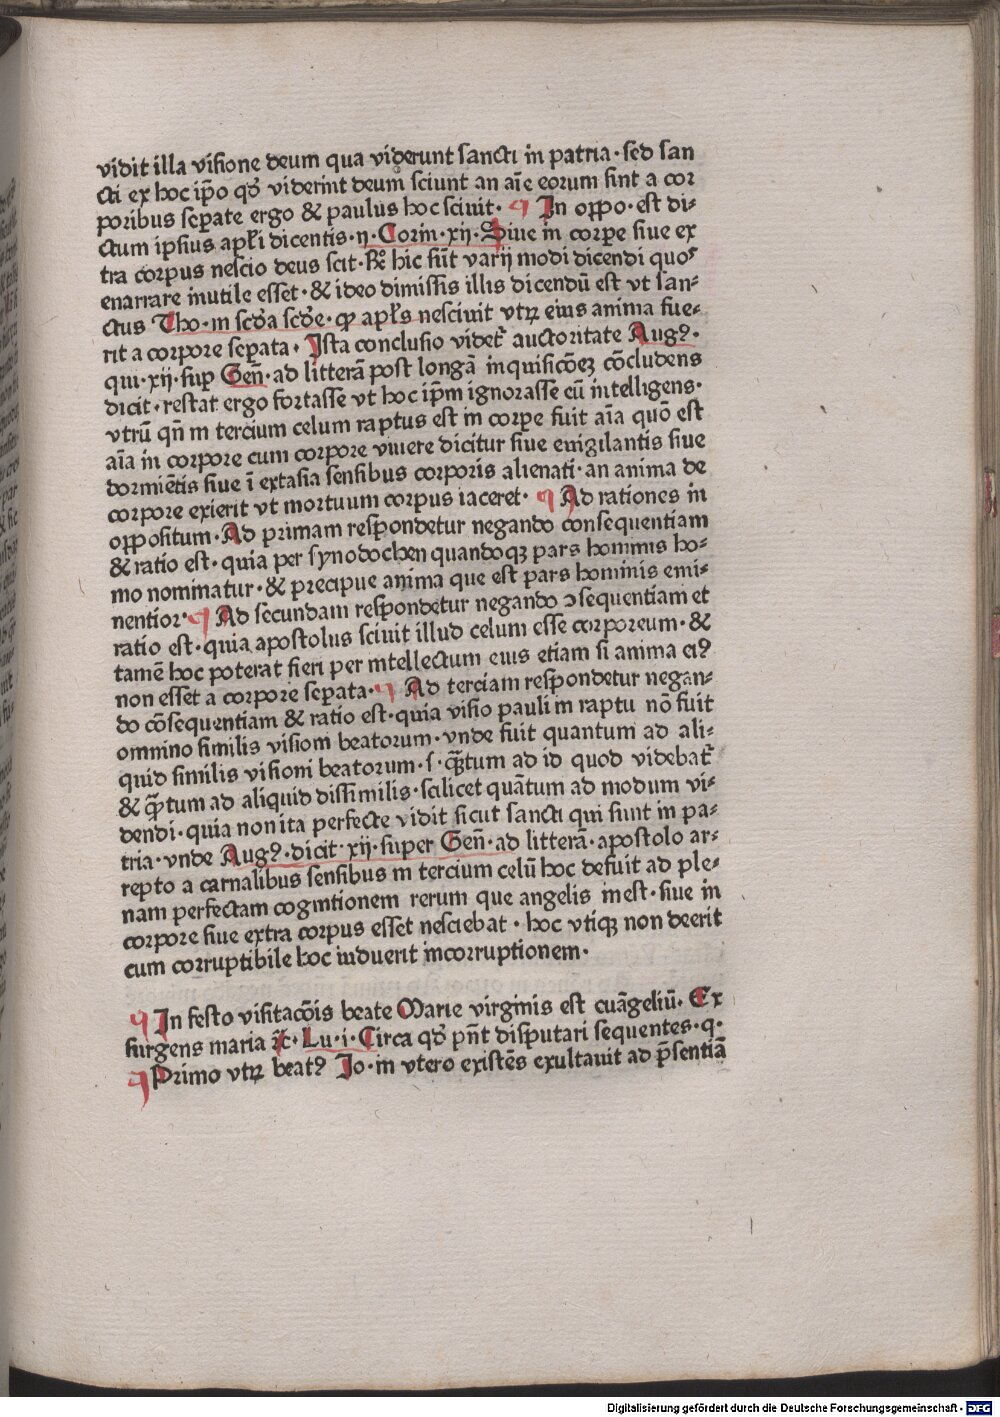 vidit illa visione deum qua viderunt sancti in patria· sed san
cti ex hoc ip̄o qd̓ viderint deum sciunt an aīe eorum sint a cor
poribus seꝑate ergo & paulus hoc sciuit· ¶ In oppo· est di⸗
ctum ipsius apl̄i dicentis· ij· Corin· xij· Siue in corpe siue ex
tra corpus nescio deus scit· Rͦ hic sūt varij modi dicendi quoꝛ
enarrare inutile esset· & ideo dimissis illis dicendū est vt san⸗
ctus Tho· in scd̓a scd̓e· ꝙ apl̄s nesciuit vtꝝ eius anima fue⸗
rit a corpore seꝑata· Ista conclusio videt᷑ auctoritate Augꝰ·
qui· xij· suꝑ Geñ· ad litterā post longā inquisicōeꝫ cōcludens
dicit· restat ergo fortasse vt hoc ip̄m ignorasse eū intelligens·
vtrū qn̄ in tercium celum raptus est in corpe fuit aīa quō est
aīa in corpore cum corpore viuere dicitur siue euigilantis siue
dormiētis siue ī extasia sensibus corporis alienati· an anima de
corpore exierit vt mortuum corpus iaceret· ¶ Ad rationes in
oppositum· Ad primam respondetur negando consequentiam
& ratio est· quia per synodochen quandoqꝫ pars hominis ho⸗
mo nominatur· & precipue anima que est pars hominis emi⸗
nentior· ¶ Ad secundam respondetur negando ↄsequentiam et
ratio est· quia apostolus sciuit illud celum esse corporeum· &
tamē hoc poterat fieri per intellectum eius etiam si anima eiꝰ
non esset a corpore seꝑata· ¶ Ad terciam respondetur negan⸗
do cōsequentiam & ratio est· quia visio pauli in raptu nō fuit
omnino similis visioni beatorum· vnde fuit quantum ad ali⸗
quid similis visioni beatorum· s· qꝫtum ad id quod videbat᷑
& qꝫtum ad aliquid dissimilis· scilicet quātum ad modum vi⸗
dendi· quia non ita perfecte vidit sicut sancti qui sunt in pa⸗
tria· vnde Augꝰ· dicit· xij· super Geñ· ad litterā· apostolo ar⸗
repto a carnalibus sensibus in tercium celū hoc defuit ad ple⸗
nam perfectam cognitionem rerum que angelis inest· siue in
corpore siue extra corpus esset nesciebat· hoc vtiqꝫ non deerit
cum corruptibile hoc induerit incorruptionem·
¶ In festo visitacōis beate Marie virginis est euāgeliū· Ex
surgens maria ꝛc̄· Lu· i· Circa qd̓ pn̄t disputari sequentes· q·
¶ Primo vtꝝ beatꝰ Jo· in vtero existēs exultauit ad p̄sentiā
Digitalisierung gefördert durch die Deutsche Forschungsgemeinschaft - DFG